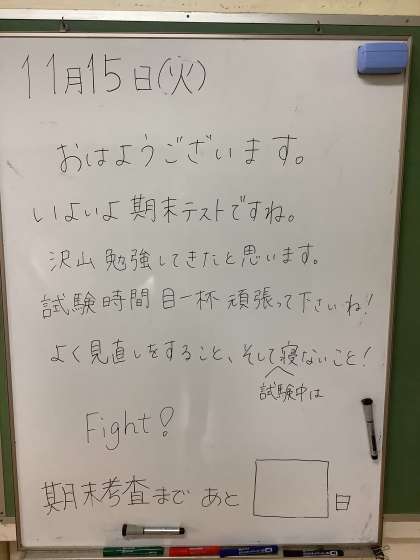 11月15日(火)
おはようございます。
いよいよ期末テストですね。
沢山勉強してきたと思います。
試験時間目一杯頑張って下さいね!
よく見直しをすること、そして寝ないこと!
試験中は
Fight!
期末考査まで あと 日